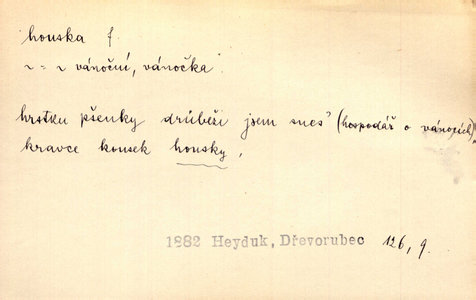 houska f.
~ = ~ vánoční, vánočka
hrstku pšenky drůbeži jsem snes' (hospodář o vánocích),
kravce kousek housky,
1882 Heyduk, Dřevorubec 126, 9.